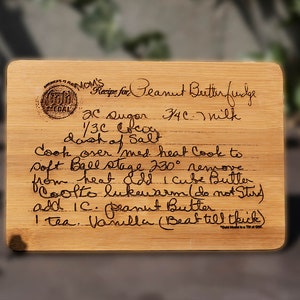 MOM'S
Gold
MEDAL
Recipe for: Peanut Butter fudge
2C sugar 3/4C. milk
1/3C Cocoa
Dash of Salt
Cook over med heat Cook to
soft Ball stage 230° remove
from heat add 1 cube Butter
Cool to lukewarm (do not Stir)
add 1 C. peanut Butter
1 tea. Vanilla (Beat till thick)